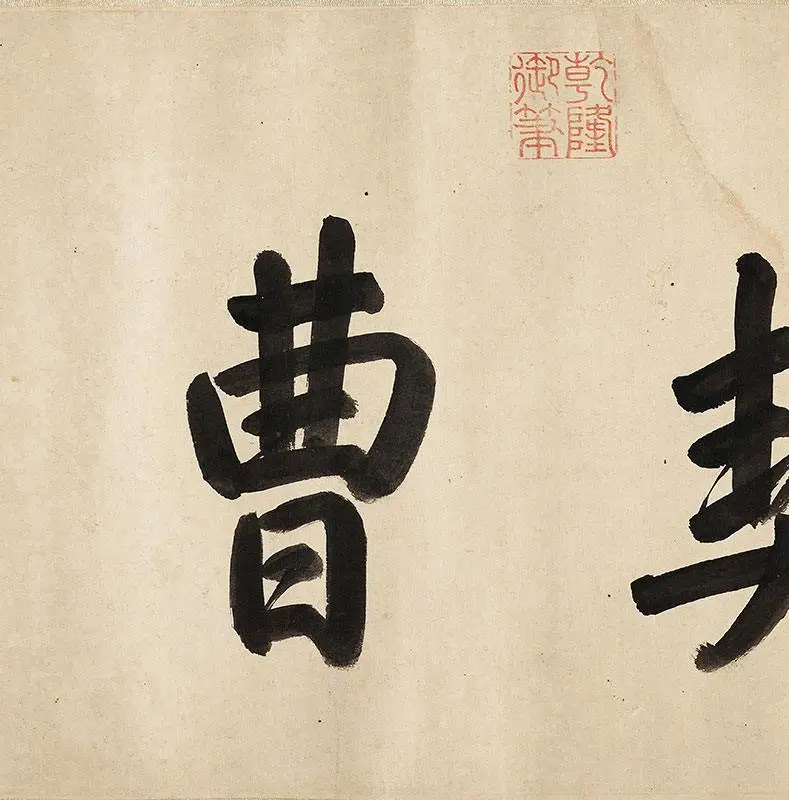 乾隆
御筆
曹